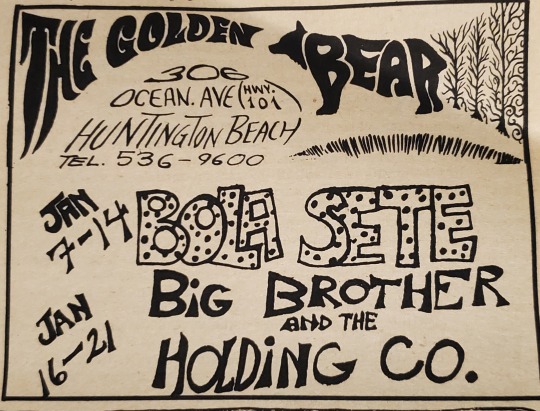 THE GOLDEN BEAR
306
OCEAN. AVE (HWY. 101)
HUNTINGTON BEACH
TEL. 536-9600
JAN 7-14
BOLA SETE
JAN 16-21
BIG BROTHER
AND THE
HOLDING CO.